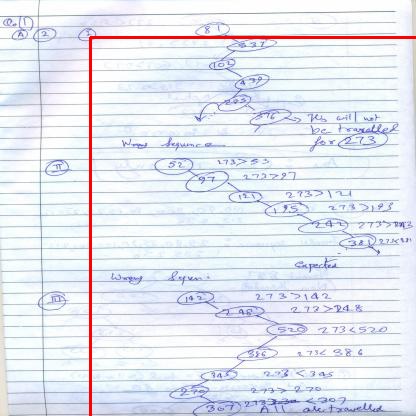 Q.1
A 2
81
537
102
439
285
376 → This will not
be travelled
for 273
Wrong Sequence
II 52 273>53
97 273>97
121 273>121
195 273>193
242 273>243
381 273<381
expected
Wrong Sequn.
III 142 273>142
248 273>248
520 273<520
386 273<386
345 273<345
270 273>270
307 273 <307
All are travelled